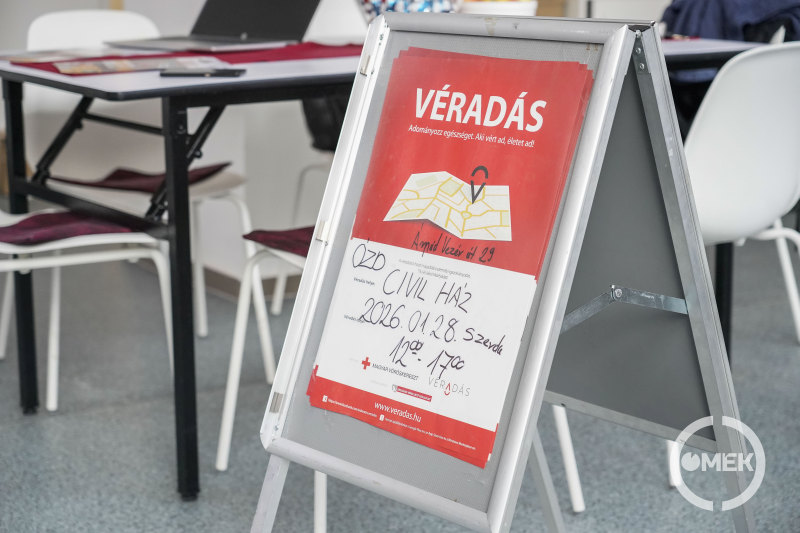 VÉRADÁS
Adományozz egészséget. Aki vért ad, életet ad!
Árpád Vezér út 29
ÓZD
CIVIL HÁZ
2026.01.28. szerda
12⁰⁰-17⁰⁰
MAGYAR VÖRÖSKERESZT
VÉRADÁS
www.veradas.hu
OMEK